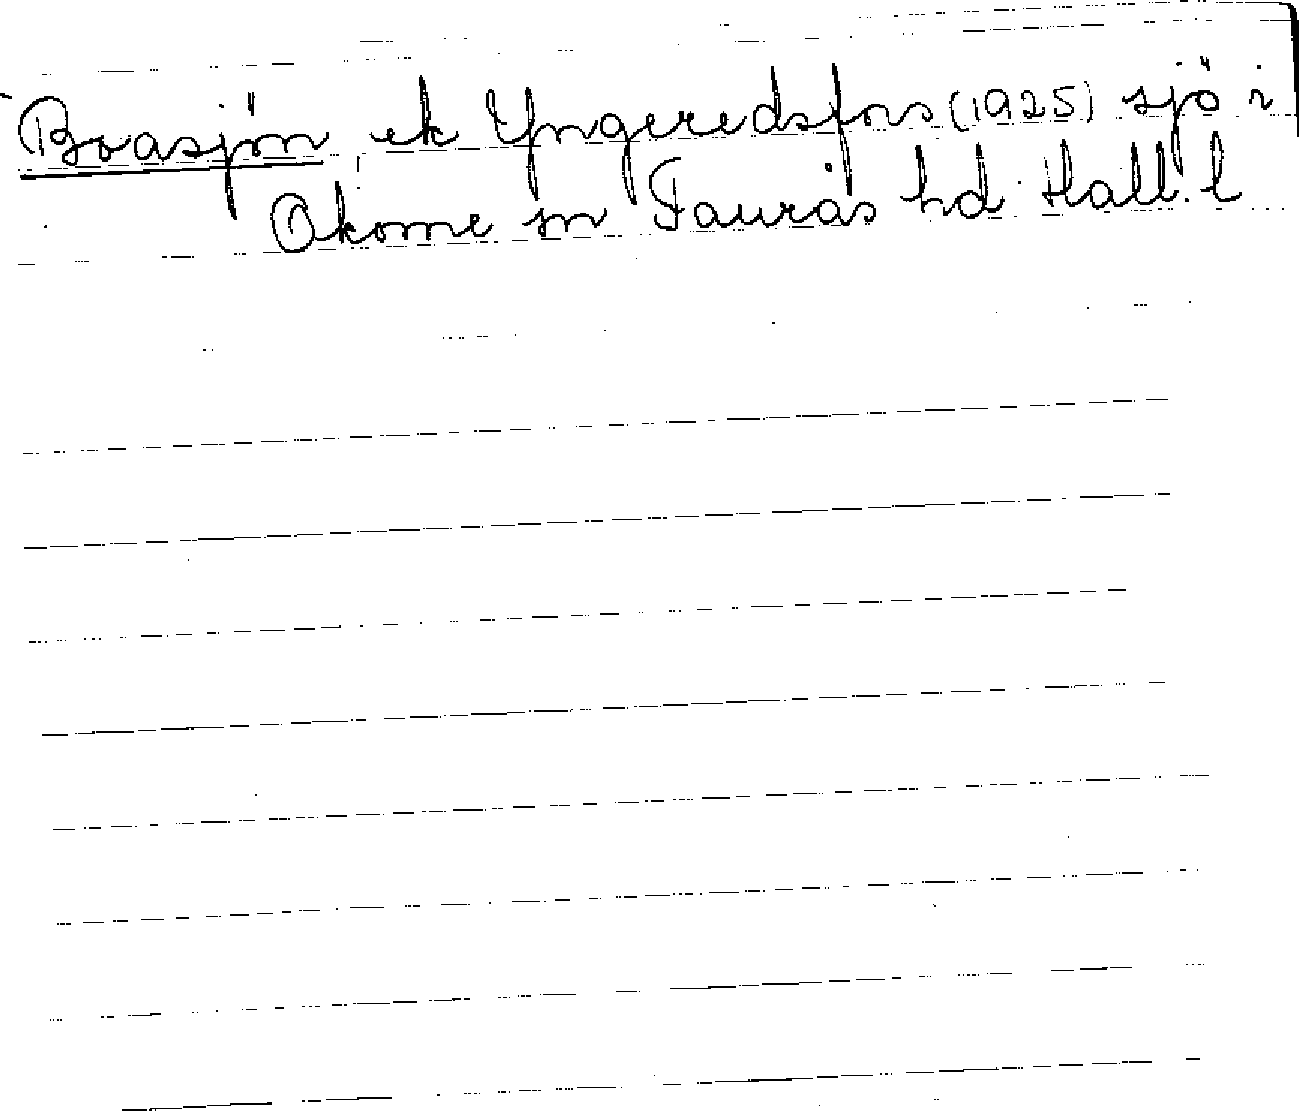 Boasjön ek Yngeredsfors (1925) sjö i
Okome sn Faurås hd Hall. l